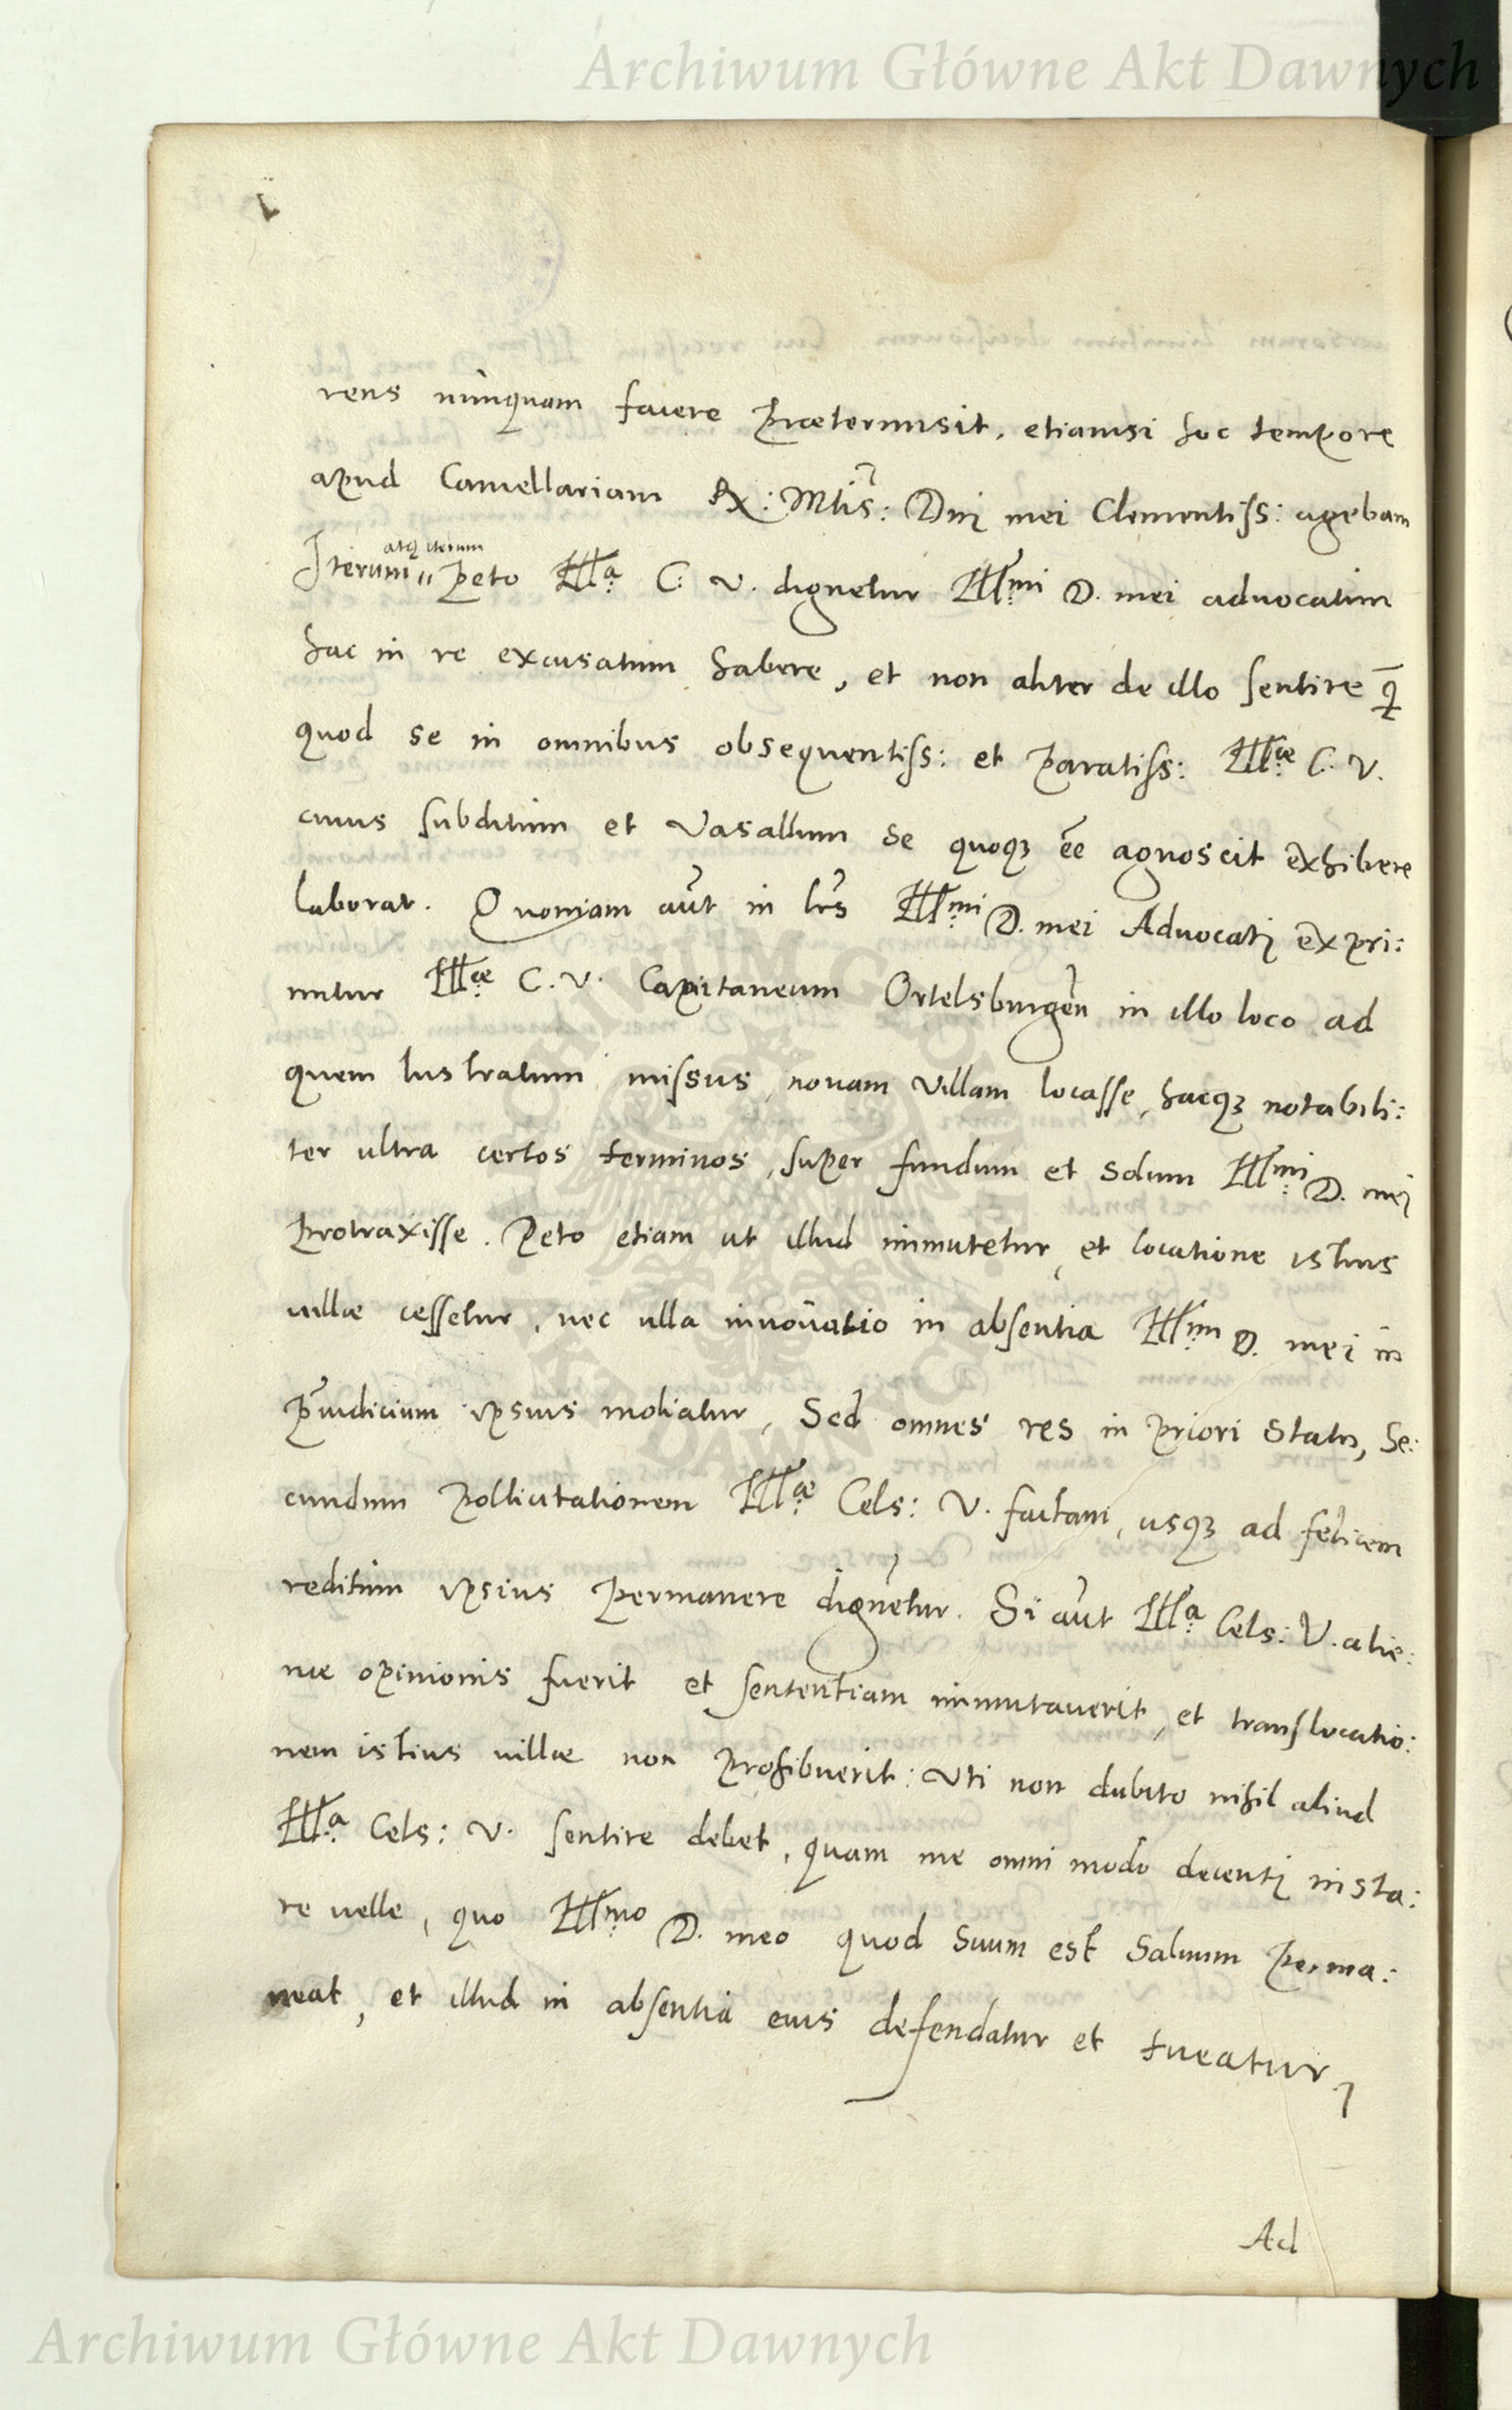 Archiwum Główne Akt Dawnych
rens nunquam facere prætermisit, etiamsi hoc tempore
apud Cancellariam R: Mtis: Dni mei Clementiss: agebam
Iterum atq iterum peto Illa C. V. dignetur Illmi D. mei advocatum
hac in re excusatum habere, et non aliter de illo sentire q̄
quod se in omnibus obsequentiss: et paratiss: Illæ C. V.
cuius subditum et Vasallum se quoqȝ ēe agnoscit exhibere
laborat. Quoniam aūt in lrs Illmi D. mei Advocati expri:
mitur Illæ C. V. Capitaneum Ortelsburgen in illo loco ad
quem lustratum missus, novam villam locasse, hacqȝ notabili:
ter ultra certos terminos, super fundum et solum Illmi D. mei
protraxisse. Peto etiam ut illud immutetur, et locatione istius
villæ cessetur, nec ulla innovatio in absentia Illmi D. mei in
p̄iudicium ipsius moliatur, Sed omnes res in priori statu, se:
cundum pollicitationem Illæ Cels: V. factam, usqȝ ad felicem
reditum ipsius permanere dignetur. Si aūt Illa Cels: V. alie:
næ opinionis fuerit et sententiam immutaverit, et translocatio:
nem istius villæ non prohibuerit: Uti non dubito nihil aliud
Illa Cels: V. sentire debet, quam me omni modo decenti insta:
re velle, quo Illmo D. meo quod suum est salvum perma:
neat, et illud in absentia eius defendatur et tueatur,
Ad
ARCHIWUM GŁÓWNE AKT DAWNYCH
Archiwum Główne Akt Dawnych